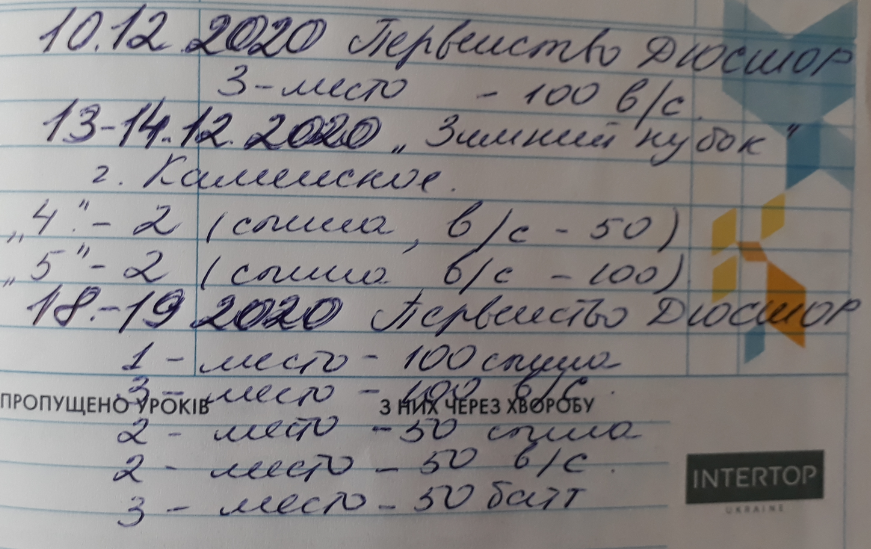 10.12 2020 Первенство ДЮСШОР
3-место - 100 в/с.
13-14.12.2020 „Зимний кубок"
г. Каменское.
„4"- 2 (спина, в/с - 50)
„5"- 2 (спина в/с - 100)
18.-19 2020 Первенство ДЮСШОР
1 - место - 100 спина
3 - место - 100 в/с.
ПРОПУЩЕНО УРОКІВ З НИХ ЧЕРЕЗ ХВОРОБУ
2 - место - 50 спина
2 - место - 50 в/с.
INTERTOP
UKRAINE
3 - место - 50 батт